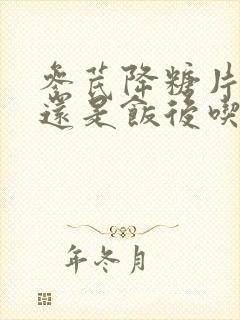 參芪降糖片
還是飯後喫
年冬月